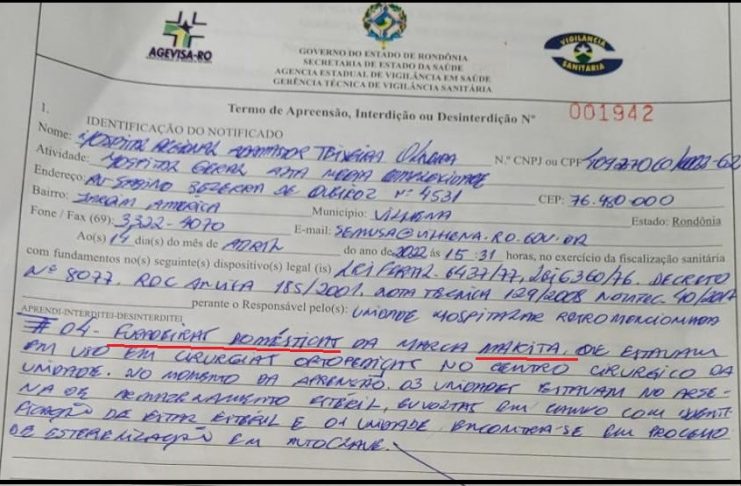 AGEVISA-RO
VIGILÂNCIA
SANITÁRIA
GOVERNO DO ESTADO DE RONDÔNIA
SECRETARIA DE ESTADO DA SAÚDE
AGENCIA ESTADUAL DE VIGILÂNCIA EM SAÚDE
GERÊNCIA TÉCNICA DE VIGILÂNCIA SANITÁRIA
Termo de Apreensão, Interdição ou Desinterdição Nº 001942
1. IDENTIFICAÇÃO DO NOTIFICADO
Nome: HOSPITAL REGIONAL ADAMASTOR TEIXEIRA OLIVEIRA N.º CNPJ ou CPF
Atividade: HOSPITAL GERAL ALTA MEDIA COMPLEXIDADE
Endereço: AV. SABINO BEZERRA DE QUEIROZ Nº 4531 CEP: 76.980.000
Bairro: JARDIM AMERICA Município: VILHENA Estado: Rondônia
Fone / Fax (69): 3322-4070 E-mail: SEMUSA@VILHENA.RO.GOV.BR
Ao(s) 14 dia(s) do mês de ABRIL do ano de 2022 às 15:31 horas, no exercício da fiscalização sanitária
com fundamentos no(s) seguinte(s) dispositivo(s) legal (is) LEI FEDERAL 6437/77, LEI 6360/76. DECRETO
Nº 8077. RDC ANVISA 185/2001. NOTA TECNICA 129/2008 NOTATEC. 40/2017
perante o Responsável pelo(s): UNIDADE HOSPITALAR RETROMENCIONADA
APRENDI-INTERDITEI-DESINTERDITEI
# 04 - FURADEIRAS DOMÉSTICAS DA MARCA MAKITA, QUE ESTAVAM
EM USO EM CIRURGIAS ORTOPEDICAS NO CENTRO CIRURGICO DA
UNIDADE. NO MOMENTO DA APREENSÃO. 03 UNIDADES ESTAVAM NO ARSE-
NA DE ARMAZENAMENTO ESTÉRIL, ENVOLTAS EM CAMPO COM IDENTI-
FICAÇÃO DE ESTAR ESTÉRIL E 01 UNIDADE ENCONTRA-SE EM PROCESSO
DE ESTERELIZAÇÃO EM AUTOCLAVE.